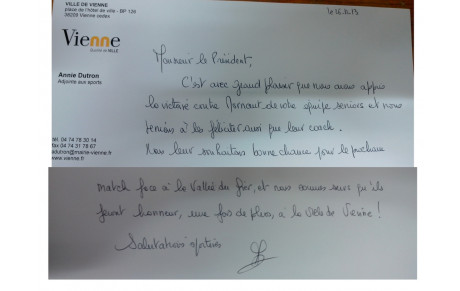 VILLE DE VIENNE
place de l'hôtel de ville - BP 126
38209 Vienne cedex
Vienne
le 16.12.13
Annie Dutron
Adjointe aux sports
Tél. 04 74 78 30 14
Fax 04 74 31 78 67
adutron@mairie-vienne.fr
www.vienne.fr
Monsieur le Président,
C'est avec grand plaisir que nous avons appris
la victoire contre Mornant de votre équipe seniors et nous
tenions à les féliciter ainsi que leur coach.
Nous leur souhaitons bonne chance pour le prochain
match face à la Vallée du Gier, et nous sommes sûrs qu'ils
feront honneur, une fois de plus, à la Ville de Vienne !
Salutations sportives